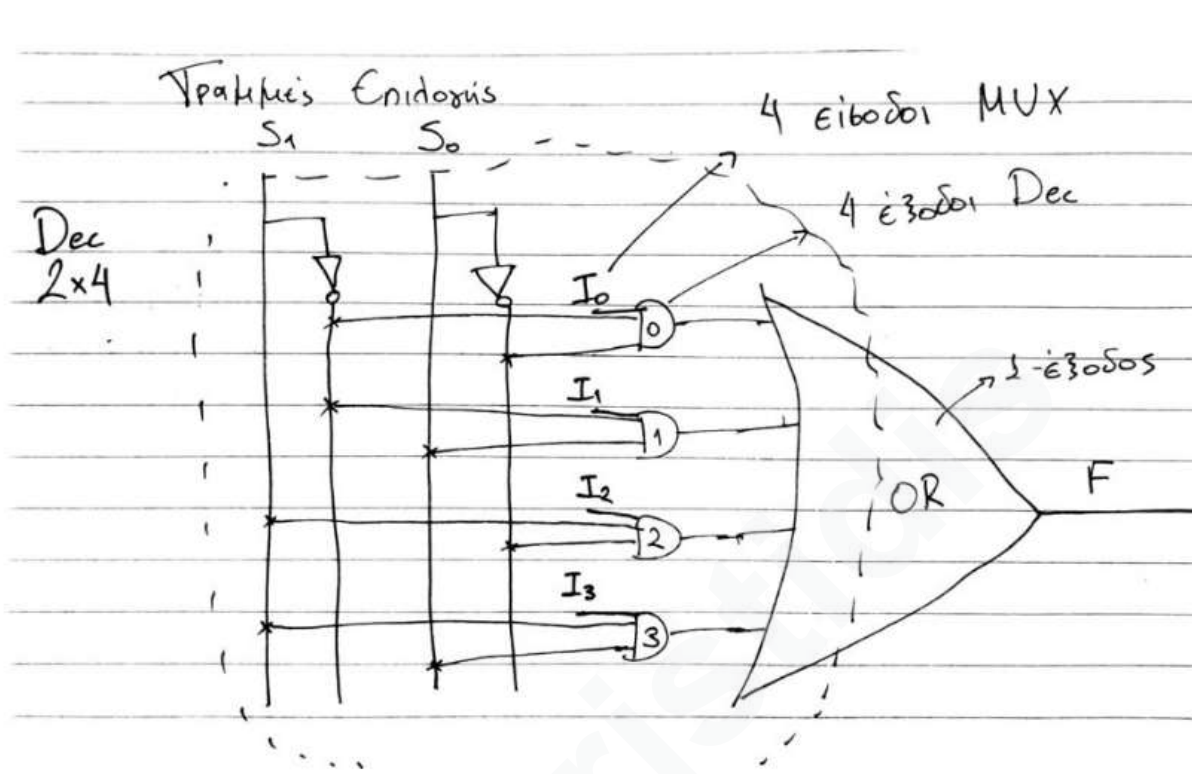 Γραμμές Επιλογής
4 είσοδοι MUX
S₁ S₀
4 έξοδοι Dec
Dec
2×4
I₀
0
1 έξοδος
I₁
1
I₂
2
OR
F
I₃
3